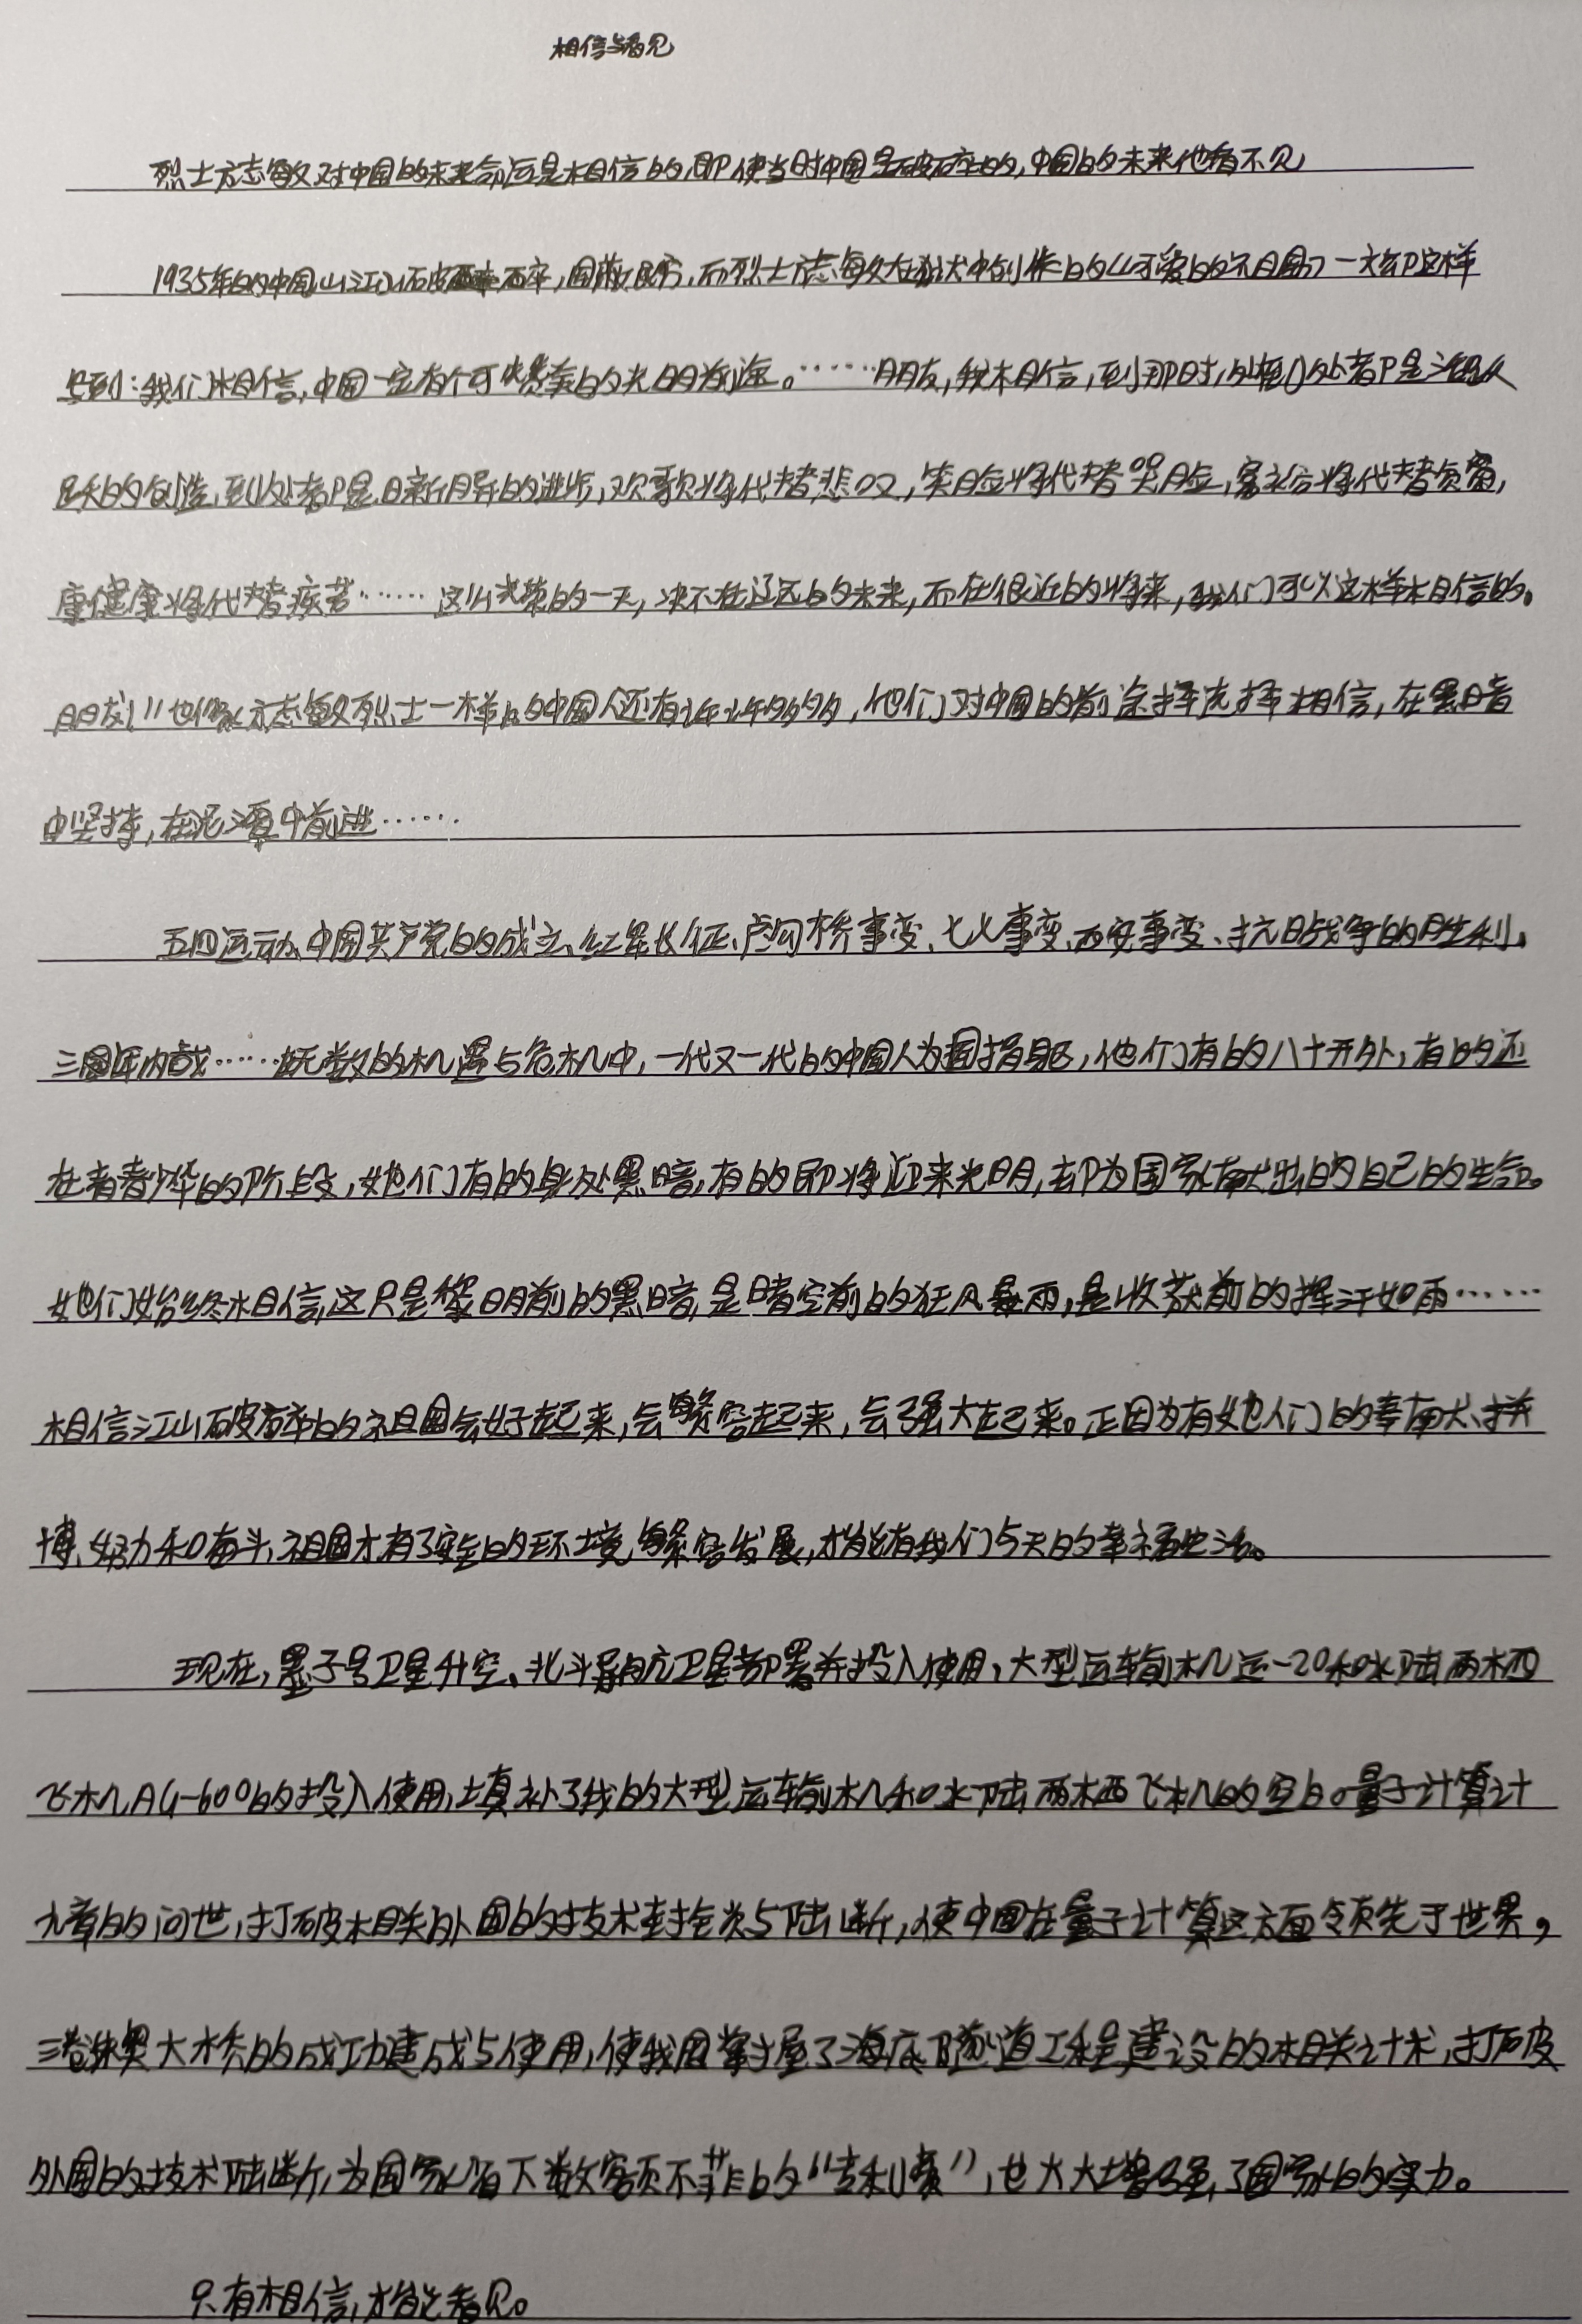 相信与看见
烈士方志敏对中国的未来命运是相信的,即使当时中国是破碎的,中国的未来他看不见
1935年的中国山江破碎,国敝民穷,而烈士方志敏在狱中创作的《可爱的中国》一文却这样
写到:我们相信,中国一定有个可赞美的光明前途。……朋友,我相信,到那时,到处都是活跃
跃的创造,到处都是日新月异的进步,欢歌将代替悲叹,笑脸将代替哭脸,富裕将代替贫穷,
康健康将代替疾苦……这么光荣的一天,决不在辽远的未来,而在很近的将来,我们可以这样相信的。
朋友!"也像方志敏烈士一样的中国人还有许许多多,他们对中国的前途择选择相信,在黑暗
中坚持,在泥潭中前进……
五四运动、中国共产党的的成立、红军长征、卢沟桥事变、七七事变、西安事变、抗日战争的胜利、
三国年内战……无数的机遇与危机中,一代又一代的中国人为国捐躯,他们有的八十开外,有的还
在青春年华的阶段,她们有的身处黑暗,有的即将迎来光明,却为国家献出的自己的生命。
她们始终相信,这只是黎明前的黑暗,是晴空前的狂风暴雨,是收获前的挥汗如雨……
相信江山破碎的祖国会好起来,会繁容起来,会强大起来。正因为有她们的奉献、拼
博、努力和奋斗,祖国才有了安全的环境,繁容发展,才能有我们今天的幸福生活。
现在,墨子号卫星升空、北斗导航卫星部署并投入使用,大型运输机运-20和水陆两栖
飞机AG-600的投入使用,填补了我的大型运输机和水陆两栖飞机的空白。量子计算计
九章的问世,打破相关外国的技术封锁与陆断,使中国在量子计算这方面领先于世界,
港珠奥大桥的成功建成与使用,使我国掌握了海底隧道工程建设的相关计术,打破
外国的技术陆断,为国家省下数额不菲的"专利费",也大大增强了国家的实力。
只有相信,才能看见。